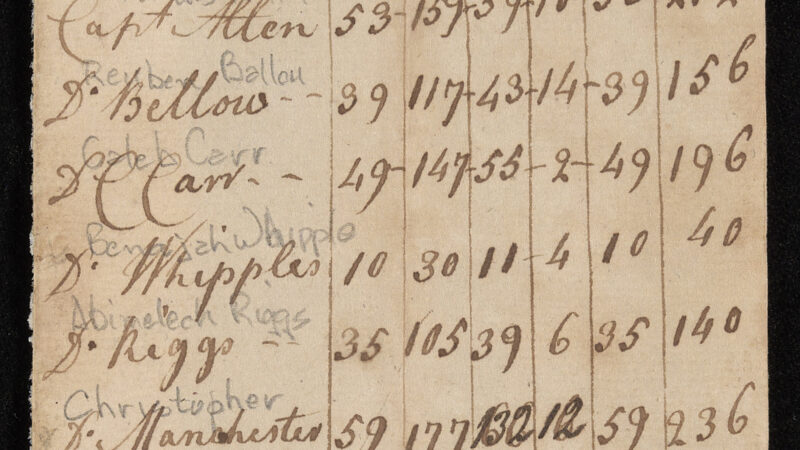 Capt Allen 53 - 159 - 39
Reuben Ballou
Do. Bellow - - 39 117 - 43 - 14 - 39 156
Caleb Carr
Do. C Carr - - 49 - 147 - 55 - 2 - 49 196
Benajah Whipple
Do. Whipples 10 30 11 - 4 10 40
Abimelech Riggs
Do. Riggs - - 35 105 39 6 35 140
Chrystopher
Do. Manchester 59 177 132 12 59 236